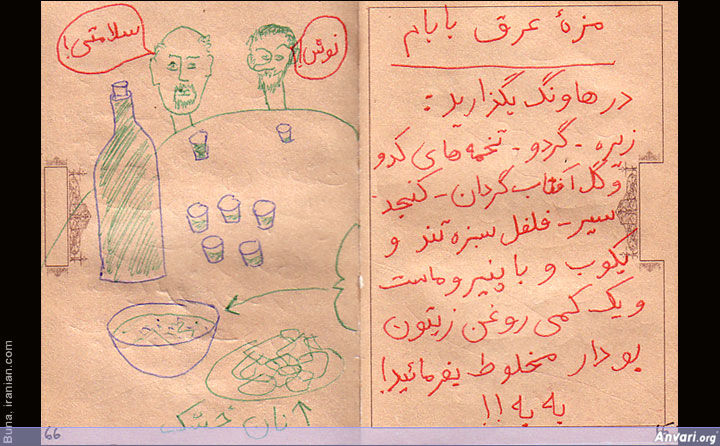 مزهٔ عرق بابام
در هاونگ بگذارید:
زیره - گردو - تخمه های کدو
و گل آفتاب گردان - کنجد
سیر - فلفل سبزه تند و
بکوب و با پنیر و ماست
و یک کمی روغن زیتون
بودار مخلوط بفرمائید!
به به!!
سلامتی!
نوش!
نان خشک
66
Buna. iranian.com
Anvari.org